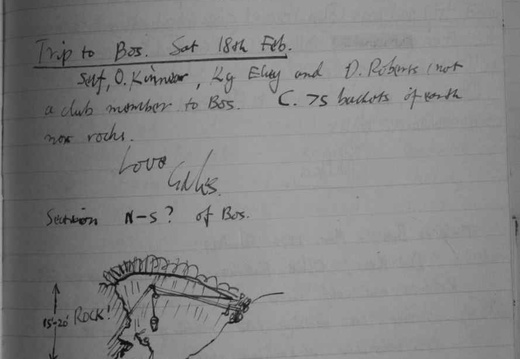 Trip to Bos. Sat 18th Feb.
Self, O. Kinnear, and D. Roberts (not
a club member to Bos. C. 75 buckets of earth
nor rocks.
Love
Section N-S? of Bos.
15'-20' ROCK!